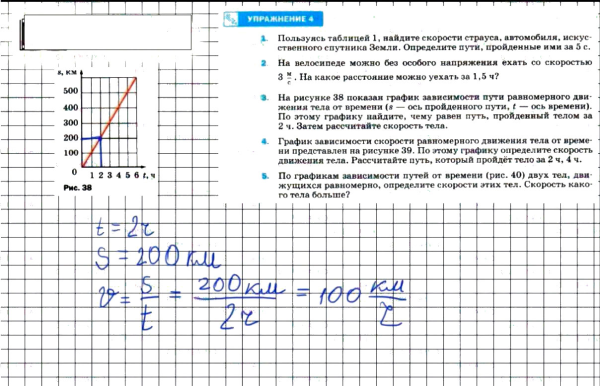 УПРАЖНЕНИЕ 4
1. Пользуясь таблицей 1, найдите скорости страуса, автомобиля, искус-
ственного спутника Земли. Определите пути, пройденные ими за 5 с.
2. На велосипеде можно без особого напряжения ехать со скоростью
3 м/с. На какое расстояние можно уехать за 1,5 ч?
3. На рисунке 38 показан график зависимости пути равномерного дви-
жения тела от времени (s — ось пройденного пути, t — ось времени).
По этому графику найдите, чему равен путь, пройденный телом за
2 ч. Затем рассчитайте скорость тела.
4. График зависимости скорости равномерного движения тела от време-
ни представлен на рисунке 39. По этому графику определите скорость
движения тела. Рассчитайте путь, который пройдёт тело за 2 ч, 4 ч.
5. По графикам зависимости путей от времени (рис. 40) двух тел, дви-
жущихся равномерно, определите скорости этих тел. Скорость како-
го тела больше?
s, км
500
400
300
200
100
0 1 2 3 4 5 6 t, ч
Рис. 38
t = 2ч
S = 200 км
v = S/t = 200 км/2ч = 100 км/ч